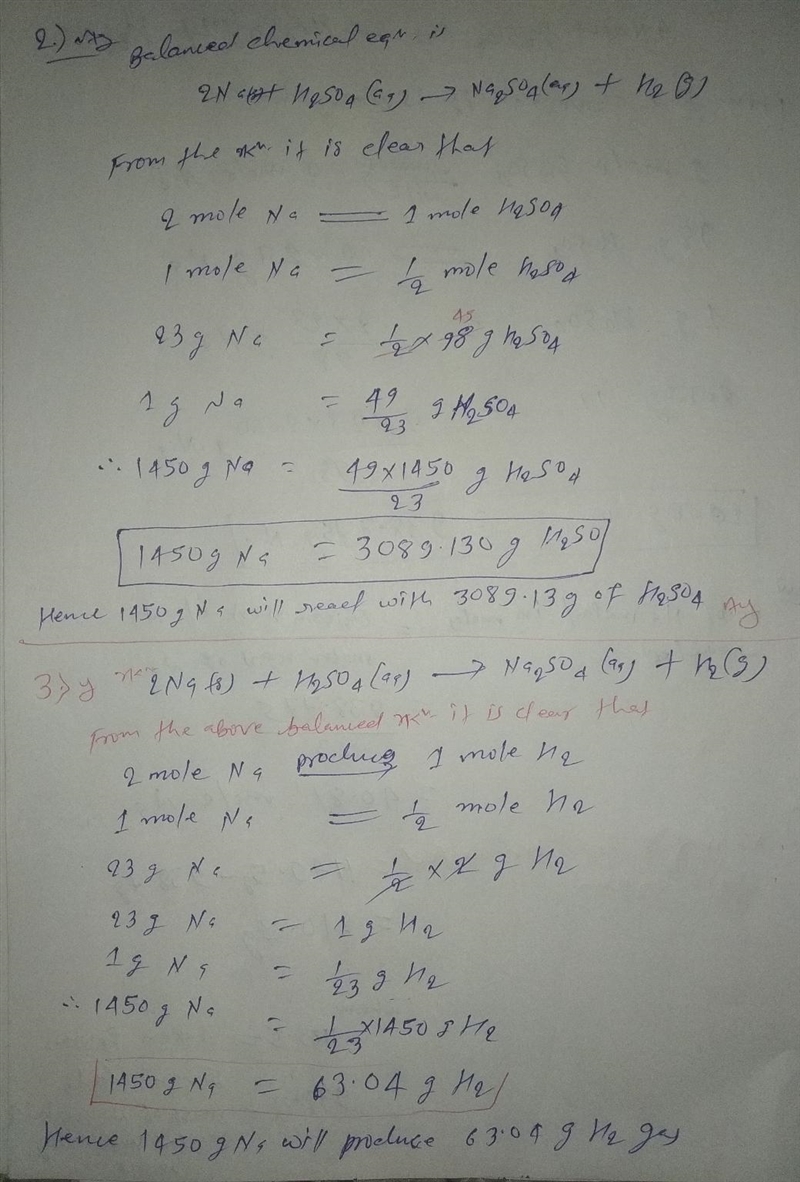 2.) Balanced chemical eqn. is
2Na(s) + H2SO4 (aq) → Na2SO4 (aq) + H2 (g)
From the rxn. it is clear that
2 mole Na = 1 mole H2SO4
1 mole Na = 1/2 mole H2SO4
49
23 g Na = 1/2 × 98 g H2SO4
1 g Na = 49/23 g H2SO4
∴ 1450 g Na = 49×1450/23 g H2SO4
1450 g Na = 3089.130 g H2SO
Hence 1450 g Na will react with 3089.13 g of H2SO4
3) rxn 2Na (s) + H2SO4 (aq) → Na2SO4 (aq) + H2 (g)
From the above balanced rxn. it is clear that
2 mole Na produces 1 mole H2
1 mole Na = 1/2 mole H2
23 g Na = 1/2 × 2 g H2
23 g Na = 1 g H2
1 g Na = 1/23 g H2
∴ 1450 g Na = 1/23 ×1450 g H2
1450 g Na = 63.04 g H2
Hence 1450 g Na will produce 63.04 g H2 gas